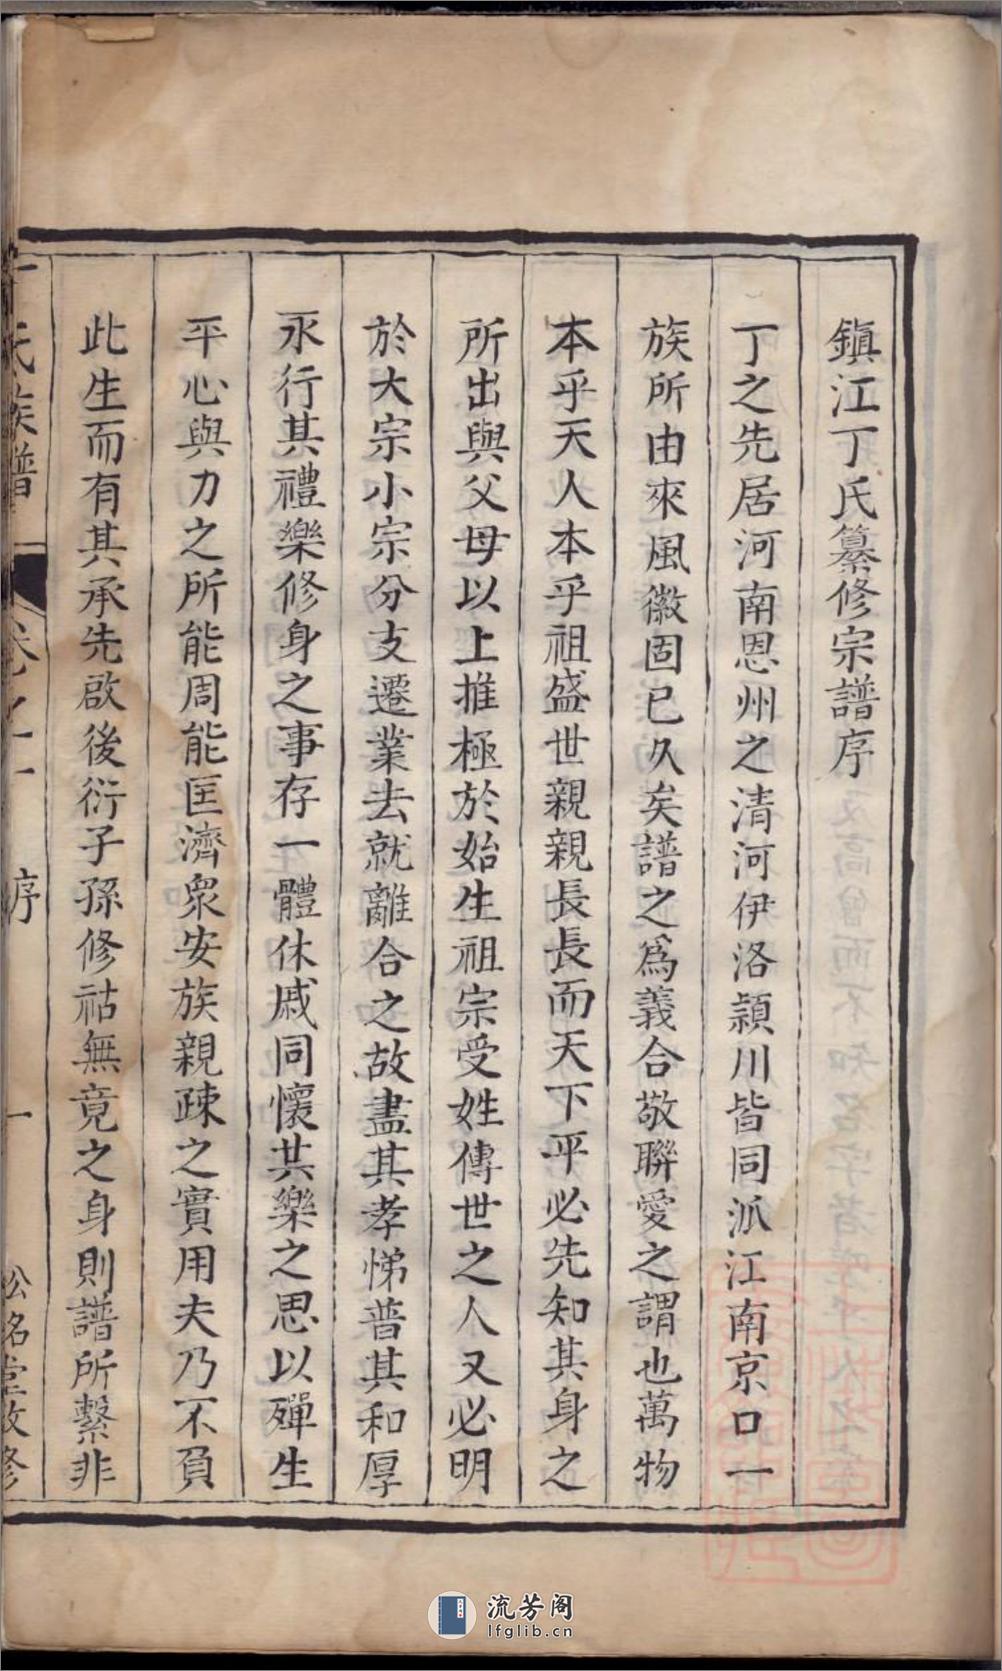 鎮江丁氏纂修宗譜序
丁之先居河南恩州之清河伊洛潁川皆同派江南京口一
族所由來風徽固已久矣譜之爲義合敬聯愛之謂也萬物
本乎天人本乎祖盛世親親長長而天下平必先知其身之
所出與父母以上推極於始生祖宗受姓傳世之人又必明
於大宗小宗分支遷業去就離合之故盡其孝悌普其和厚
永行其禮樂修身之事存一體休戚同懷共樂之思以殫生
平心與力之所能周能匡濟衆安族親疎之實用夫乃不負
此生而有其承先啟後衍子孫修祜無竟之身則譜所繫非
丁氏族譜 卷之一 序 一 松銘堂敬修
流芳阁
lfglib.cn